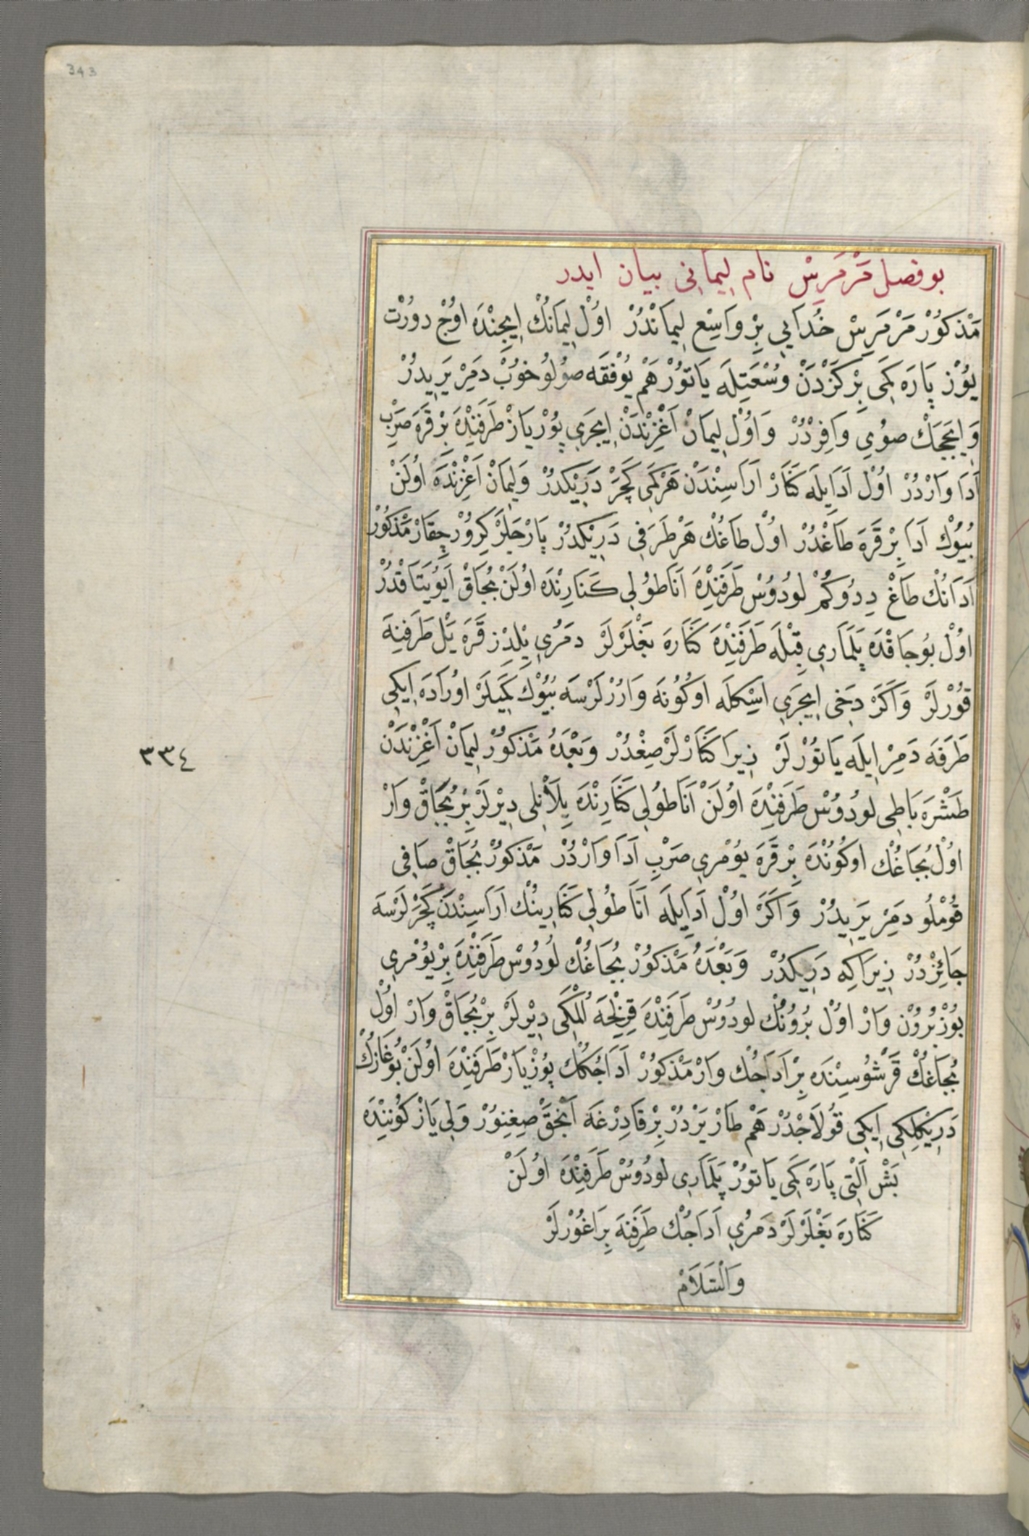 343
بو فصل مَرْمَرِسْ نام لِيمَانِی بيان ايدر
مَذْكوُرْ مَرْمَرِسْ خُدَايِی بِرْ وَاسِعْ لِيمَانْدُرْ اوُلْ لِيمَانُكْ اِيچِنْدَه اوُچْ دوُرْت
يوُزْ پَارَه كَمِی بِرْكَزْدَنْ وُسْعَتِلَه يَاتوُرْ هَمْ يوُفْقَه صوُلوُ خوُبْ دَمِرْ يَرِيدُرْ
وَ اِيچَجَكْ صوُيِی وَافِرْدُرْ وَ اوُلْ لِيمَانْ اَغْزِنْدَنْ اِيچَرِی پوُرْيَازْ طَرَفِنْدَه بِرْ قَرَه صَرْبْ
اَدَا وَارْدُرْ اوُلْ اَدَايِلَه كَنَارْ اَرَاسِنْدَنْ هَرْ كَمِی كَچَرْ دَرِيكْدُرْ وَ لِيمَانْ اَغْزِنْدَه اوُلَنْ
بُيوُكْ اَدَا بِرْ قَرَه طَاغْدُرْ اوُلْ طَاغُكْ هَرْ طَرَفِی دَرِيكْدُرْ پَارْچَلَرْ كِرُورْ چِقَارْ مَذْكوُرْ
اَدَانُكْ طَاغْ دِدُوكُمْ لوُدوُسْ طَرَفِنْدَه اَنَاطوُلِی كَنَارِنْدَه اوُلَنْ بُجَاقْ اَيوُ يَتَاقْدُرْ
اوُلْ بوُجَاقْدَه پَلَمَارِی قِبْلَه طَرَفِنْدَه كَنَارَه بَغْلَرْلَرْ دَمُرِی يِلْدِزْ قَرَه يَلْ طَرَفِنَه
قوُرْلَرْ وَ اَكَرْ دَخِی اِيچَرِی اَسْكِلَه اوكوُنَه وَارُرْلَرْسَه بُيوُكْ كَمِيلَرْ اوُرَادَه اِيكِی
طَرَفَه دَمِرْ اِيلَه يَاتوُرْلَرْ زِيرَا كَنَارْلَرْ صِغْدُرْ وَ بَعْدَهُ مَذْكوُرْ لِيمَانْ اَغْزِنْدَنْ
٣٣٤
طَشْرَه بَاطِی لوُدوُسْ طَرَفِنْدَه اوُلَنْ اَنَاطوُلِی كَنَارِنْدَه يِلَانْلِی دِيرْلَرْ بِرْ بُجَاقْ وَارْ
اوُلْ بُجَاغُكْ اوكوُنْدَه بِرْ قَرَه يوُمْرِی صَرْبْ اَدَا وَارْدُرْ مَذْكوُرْ بُجَاقْ صَافِی
قوُمْلُو دَمِرْ يَرِيدُرْ وَ اَكَرْ اوُلْ اَدَايِلَه اَنَاطوُلِی كَنَارِينُكْ اَرَاسِنْدَنْ كَچَرْلَرْسَه
جَائِزْدُرْ زِيرَاكِه دَرِيكْدُرْ وَ بَعْدَهُ مَذْكوُرْ بُجَاغُكْ لُودُوسْ طَرَفِنْدَه بِرْ يوُمْرِی
بوُزْ بُروُنْ وَارْ اوُلْ بُروُنُكْ لودُوسْ طَرَفِنْدَه قِرِنْجَه دِيرْلَرْ بِرْ بُجَاقْ وَارْ اوُلْ
بُجَاغُكْ قَرْشوُسِنْدَه بِرْ اَدَاجُكْ وَارْ مَذْكوُرْ اَدَاجُكُكْ پوُرْيَازْ طَرَفِنْدَه اوُلَنْ بوُغَازُكْ
دَرِيكْلِكِی اِيكِی قوُلَاجْدُرْ هَمْ طَارْ يَرْدُرْ بِرْ قَادِرْغَه اَنْجَقْ صِغِنوُرْ وَلِی يَازْ كوُنِنْدَه
بَشْ اَلْتِی پَارَه كَمِی يَاتوُرْ پَلَمَارِی لودُوسْ طَرَفِنْدَه اوُلَنْ
كَنَارَه بَغْلَرْلَرْ دَمُرِی اَدَاجُكْ طَرَفِنَه بِرَاغوُرْلَرْ
وَالسَّلَامْ